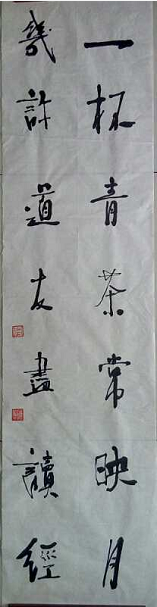 一杯青茶常映月
幾許道友盡讀經